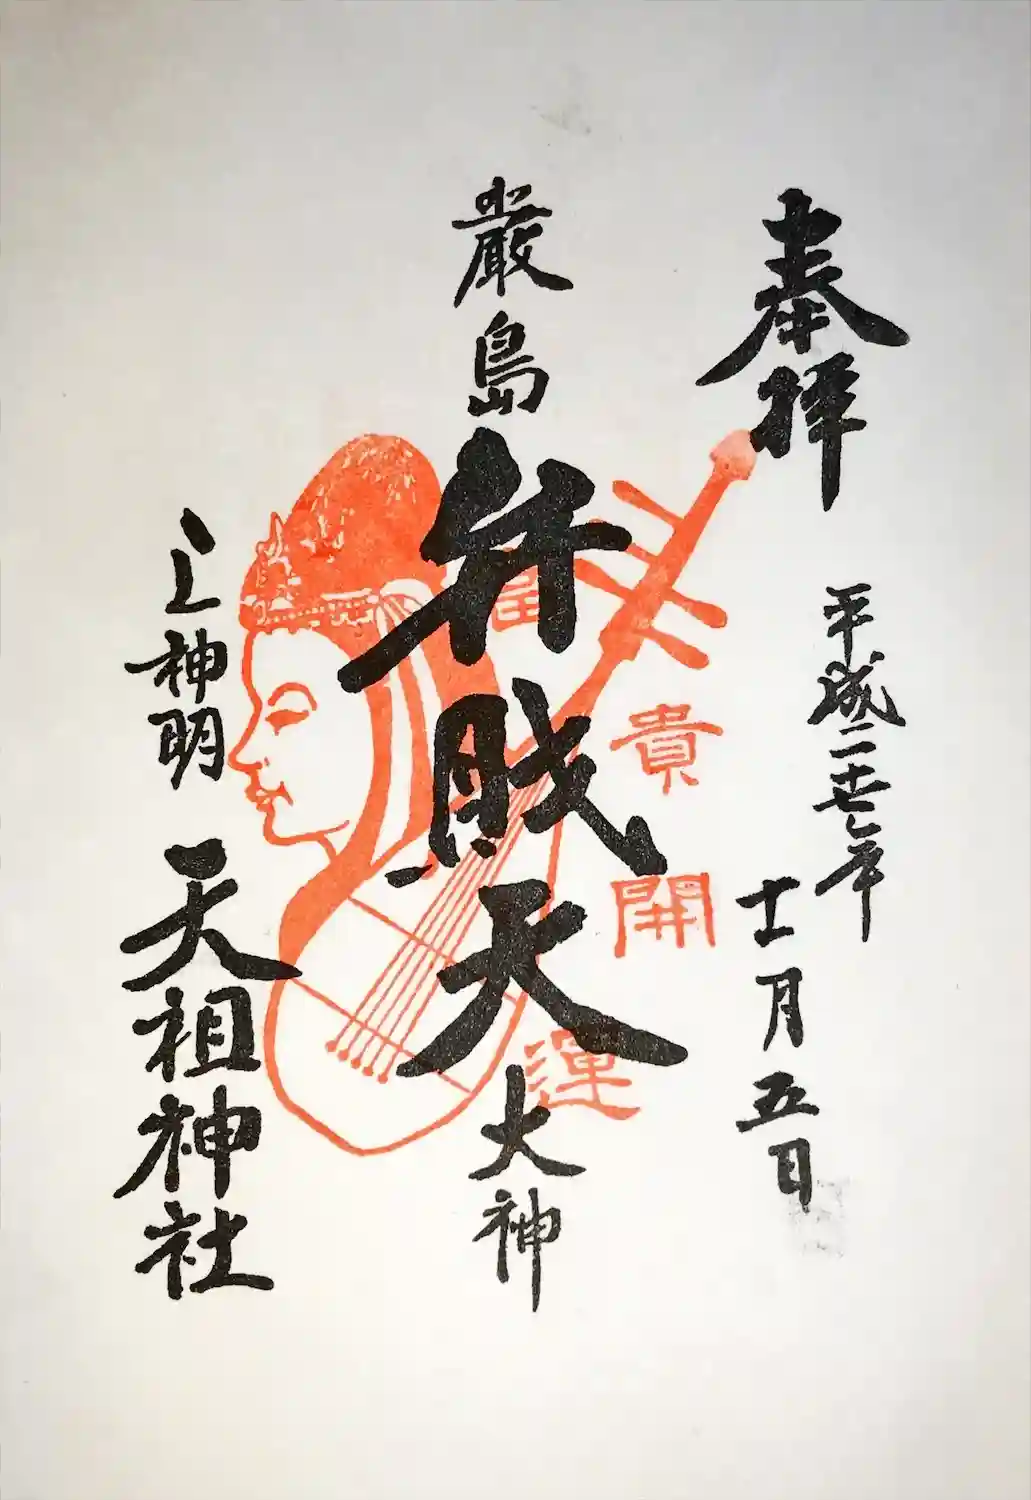 奉拝
平成二十七年
十一月五日
厳島
弁財天
大神
富貴開運
上神明
天祖神社